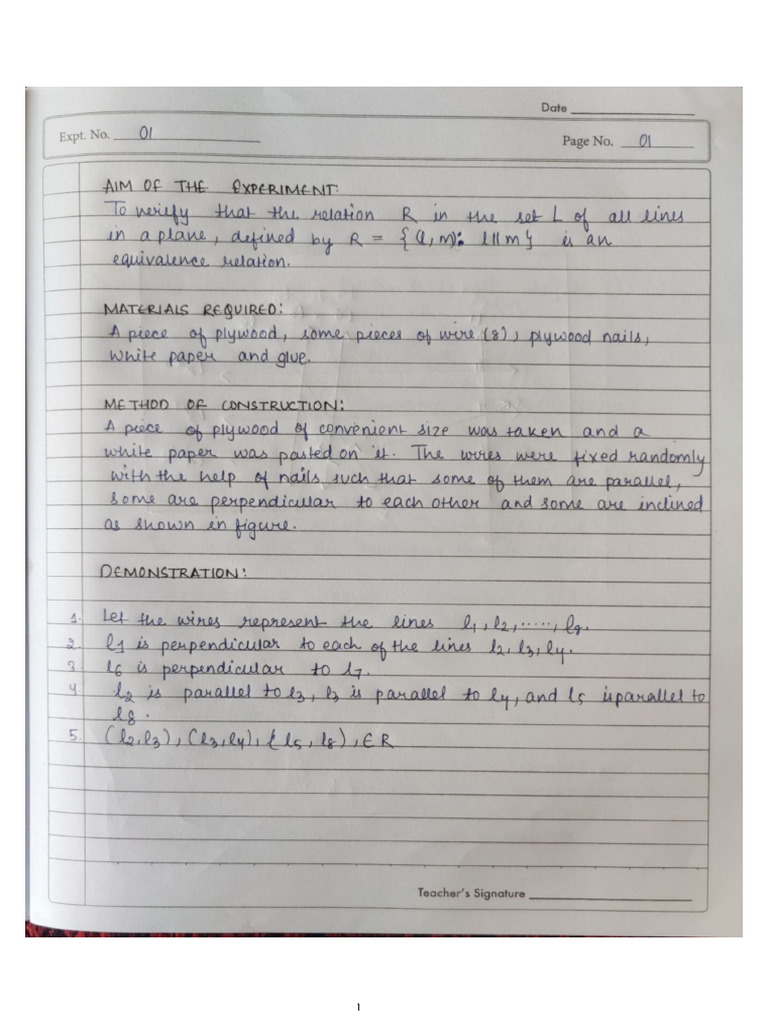 Date
Expt. No. 01
Page No. 01
AIM OF THE EXPERIMENT:
To verify that the relation R in the set L of all lines
in a plane, defined by R = {(l, m): l || m} is an
equivalence relation.
MATERIALS REQUIRED:
A piece of plywood, some pieces of wire (8), plywood nails,
white paper and glue.
METHOD OF CONSTRUCTION:
A piece of plywood of convenient size was taken and a
white paper was pasted on it. The wires were fixed randomly
with the help of nails such that some of them are parallel,
some are perpendicular to each other and some are inclined
as shown in figure.
DEMONSTRATION:
1. Let the wires represent the lines l1, l2, ....., l8.
2. l1 is perpendicular to each of the lines l2, l3, l4.
3 l6 is perpendicular to l7.
4 l2 is parallel to l3, l3 is parallel to l4, and l5 is parallel to
l8.
5. (l2, l3), (l3, l4), (l5, l8), ∈ R
Teacher's Signature
1